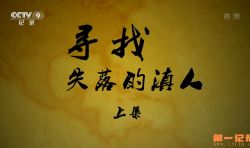 CCTV 9 高清
纪录
寻找
失落的滇人
上集
第一纪录